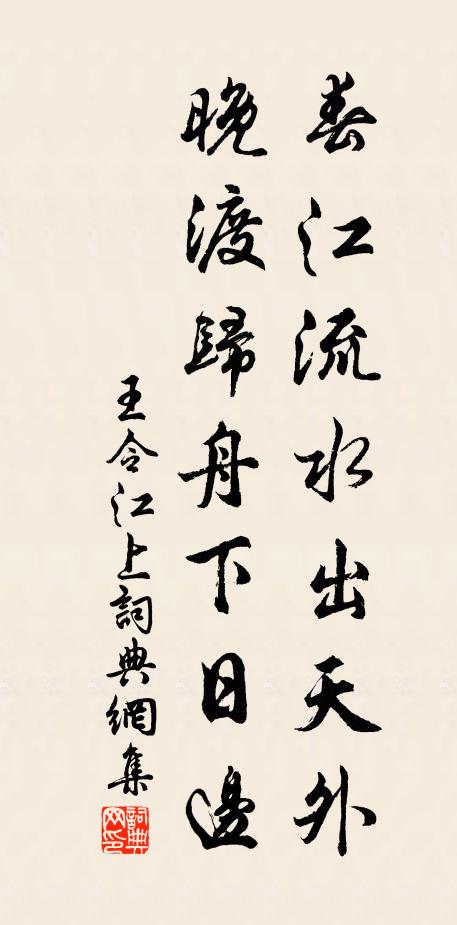 春江流水出天外
晚渡歸舟下日邊
王令江上詞典網集
詞典網印